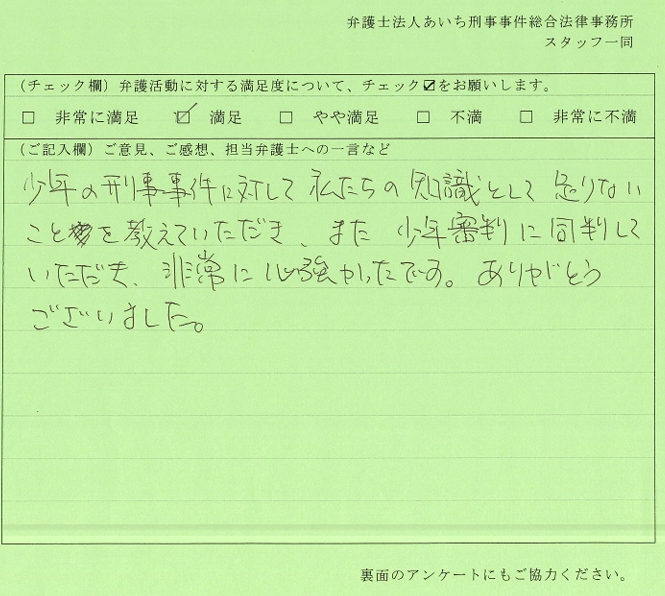 弁護士法人あいち刑事事件総合法律事務所
スタッフ一同
（チェック欄）弁護活動に対する満足度について、チェック☑をお願いします。
□ 非常に満足 ☑ 満足 □ やや満足 □ 不満 □ 非常に不満
（ご記入欄）ご意見、ご感想、担当弁護士への一言など
少年の刑事事件に対して私たちの知識として足りない
ことを教えていただき、また少年審判に同判して
いただき、非常に心強かったです。ありがとう
ございました。
裏面のアンケートにもご協力ください。